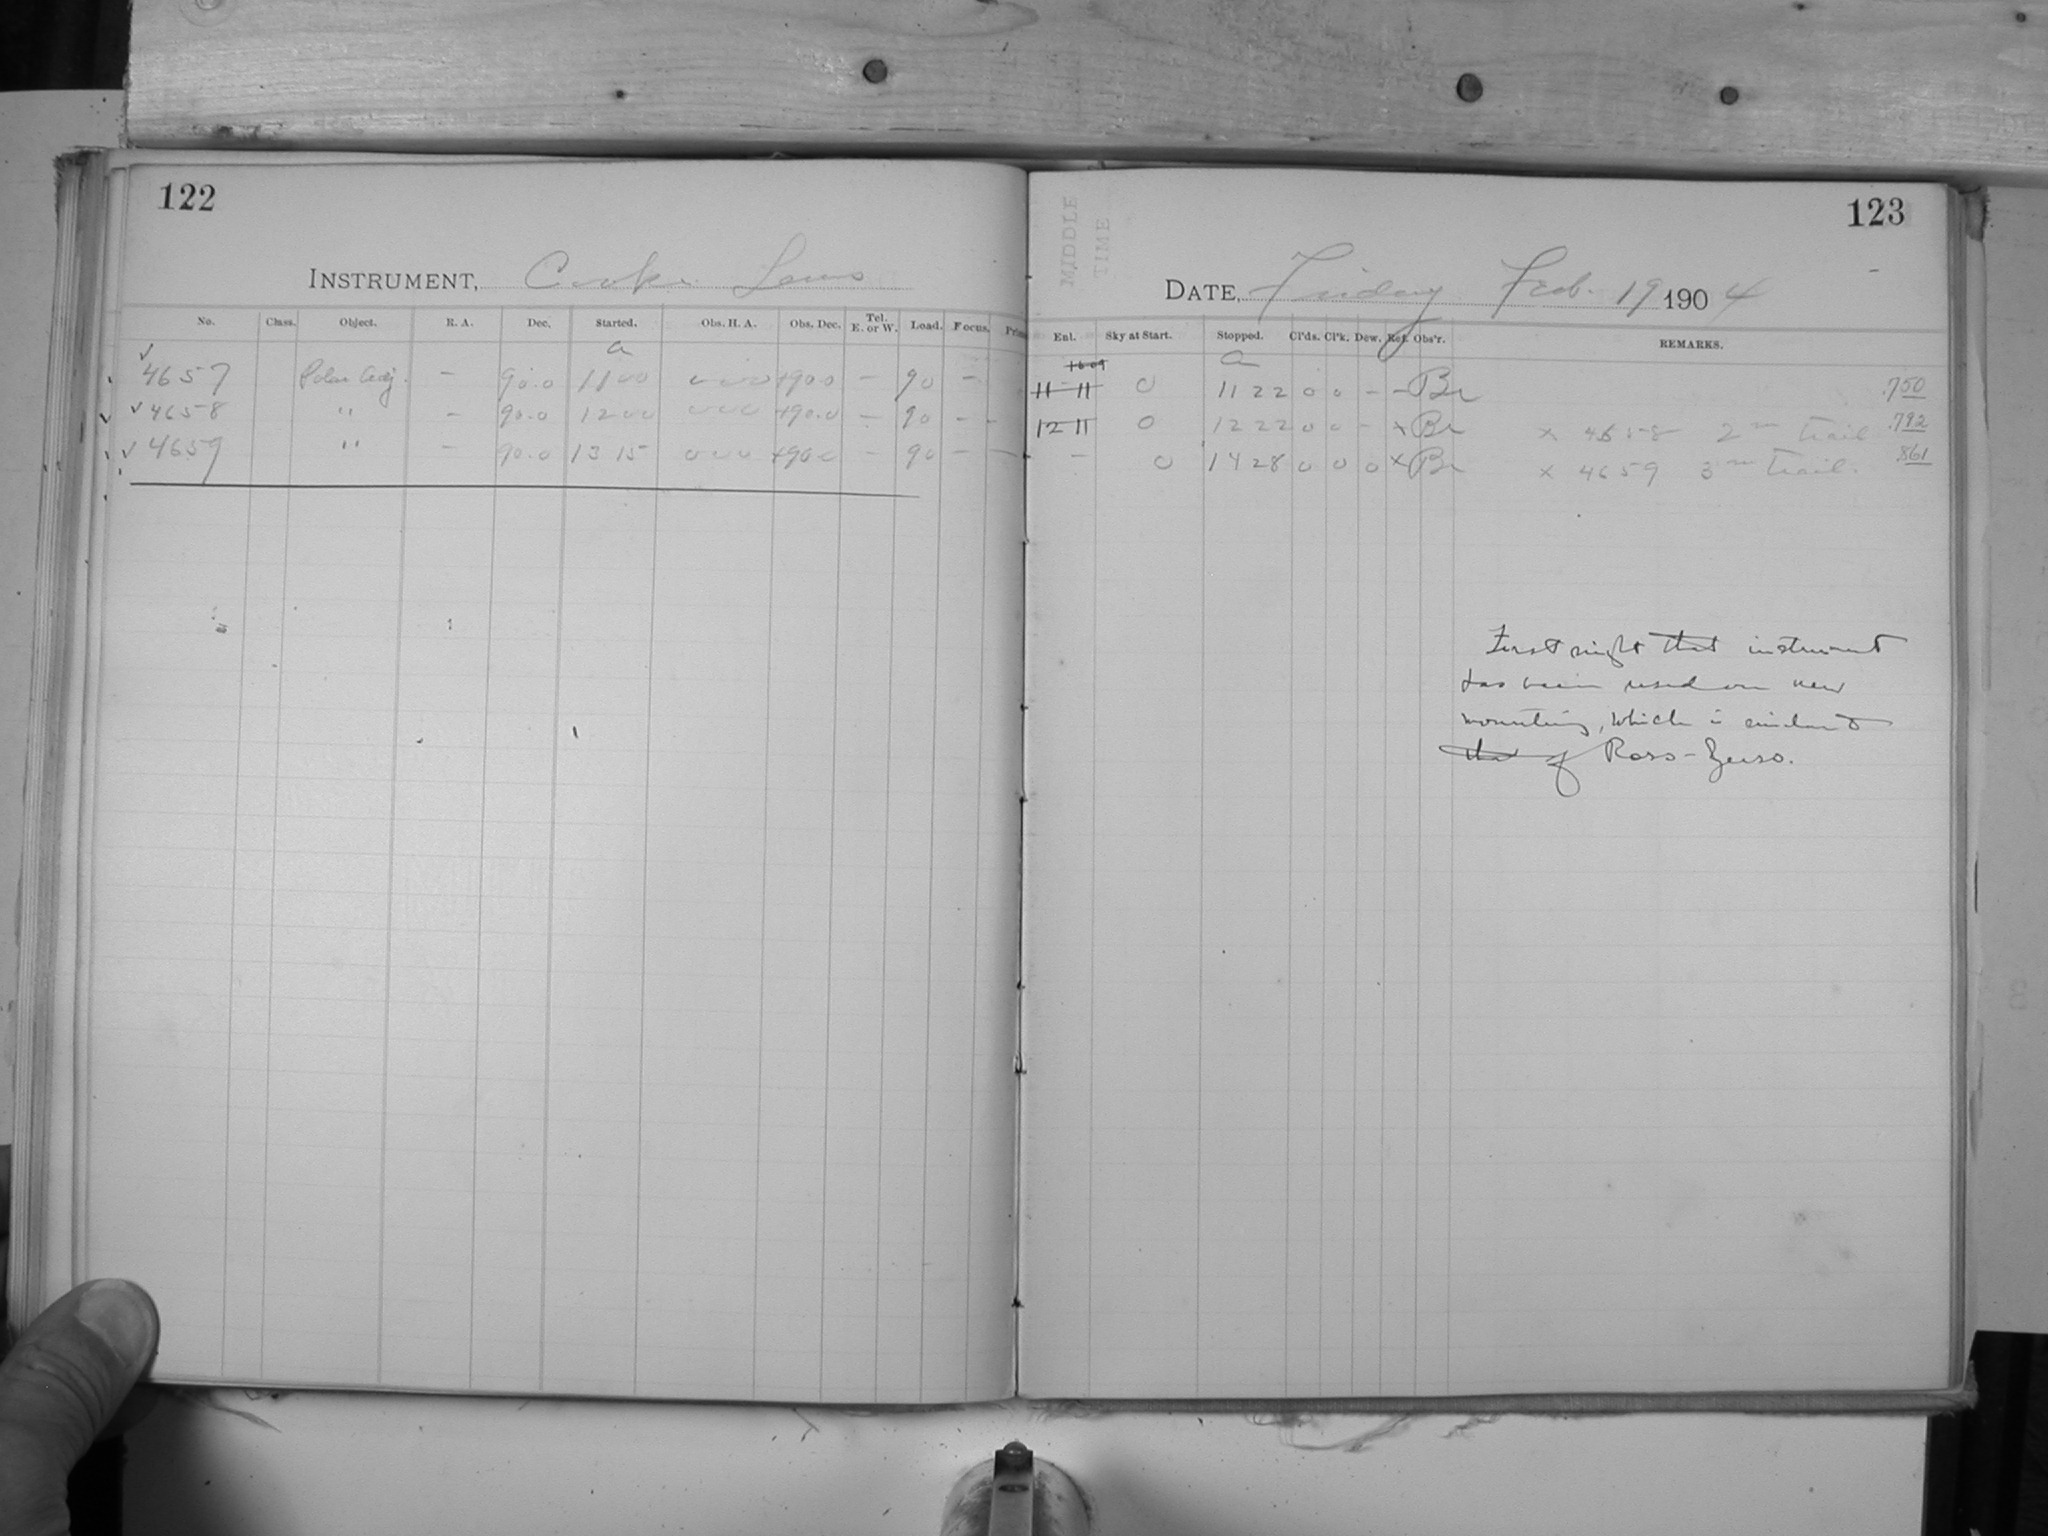 122
INSTRUMENT, Cooke Lens
No. Class. Object. R. A. Dec. Started. Obs. H. A. Obs. Dec. Tel. E. or W. Load. Focus.
a
✓ 4657 Polar Adj. — 90.0 11 00 0 0 0 +90.0 — 90 —
✓ 4658 " — 90.0 12 00 0 0 0 +90.0 — 90 — -
✓ 4659 " — 90.0 13 15 0 0 0 +90.0 — 90 — —
MIDDLE
TIME
123
DATE, Friday Feb. 19 1904
Enl. Sky at Start. Stopped. Cl'ds. Cl'k. Dew. Ref. Obs'r. REMARKS.
a
11 11 0 11 22 0 0 - - Br .750
12 11 0 12 22 0 0 - x Br x 4658 2nd trail .792
- 0 14 28 0 0 0 x Br x 4659 3rd trail. .861
First night that instrument
has been used on new
mounting, which is similar to
that of Ross-Zeiss.